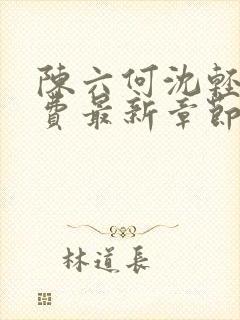 陳六何沈輕
費最新章節
林道長